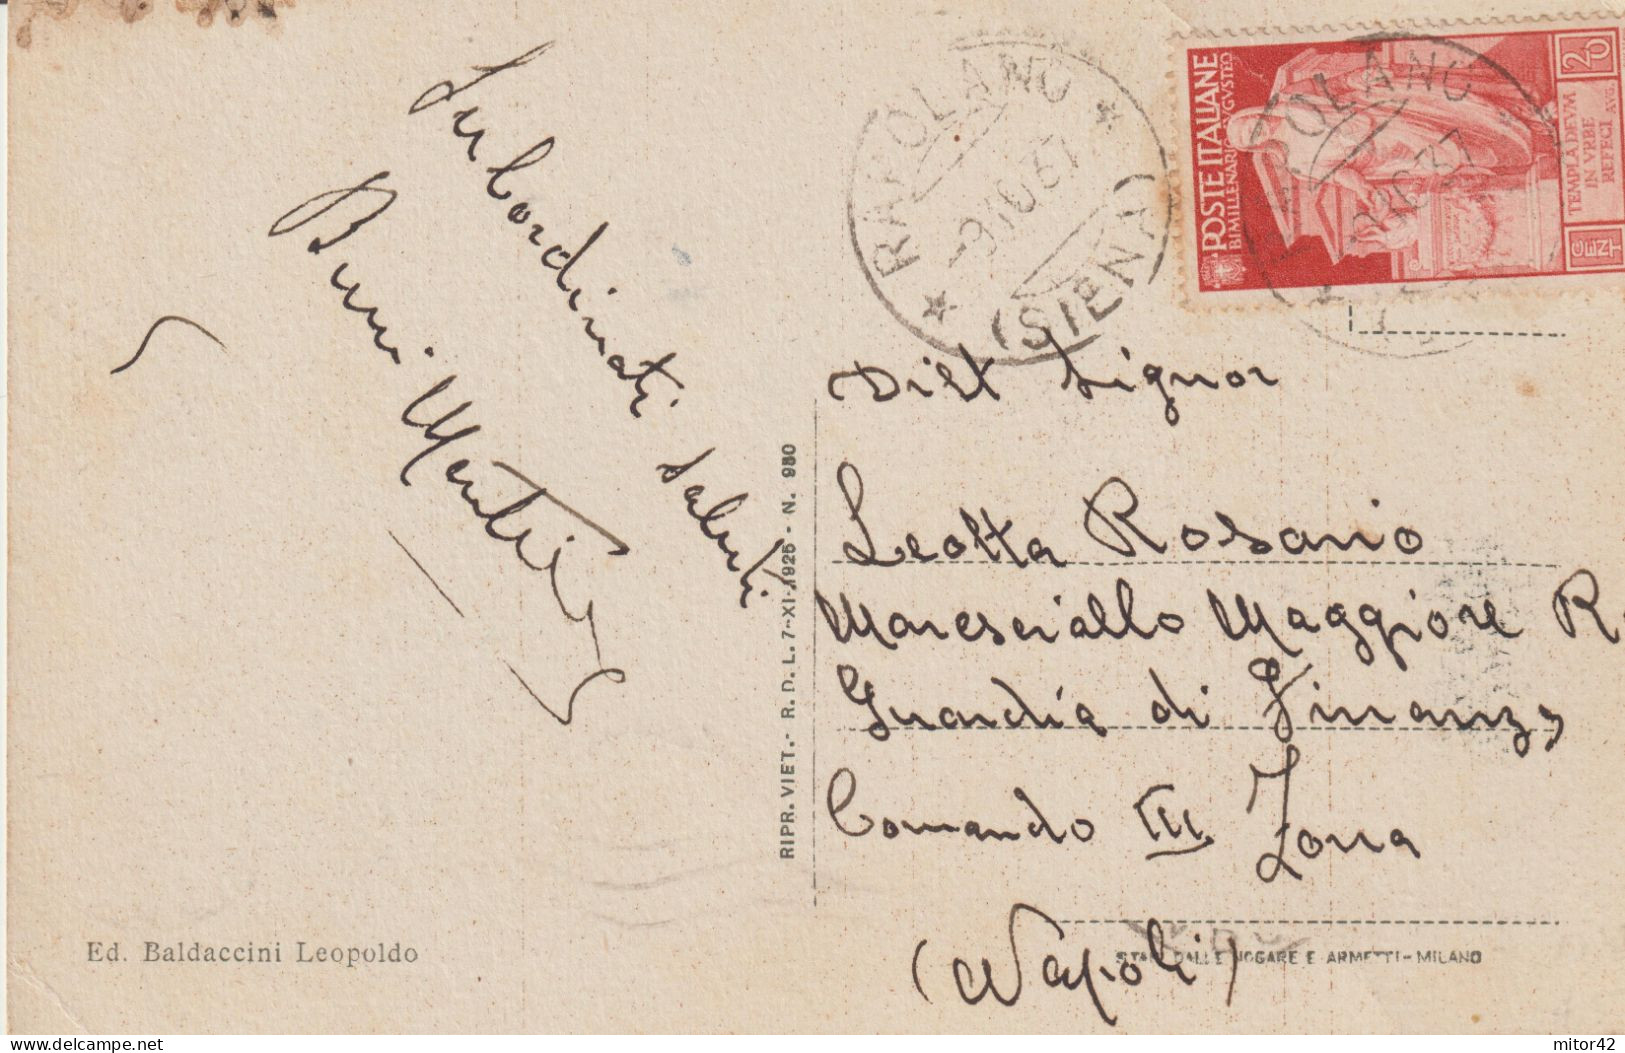 Subordinati saluti
Buni
RAPOLANO
-9.10.37
(SIENA)
POSTE ITALIANE
BIMILLENARIO AVGVSTEO
TEMPLA DEVM
IN VRBE
REFECI
AVG.
20
CENT
RAPOLANO
Dist Signor
Leotta Rosario
Maresciallo Maggiore R.
Guardia di Finanza
Comando III Zona
(Napoli)
RIPR. VIET. - R. D. L. 7-XI-1925 - N. 950
Ed. Baldaccini Leopoldo
STAB. DALLE NOGARE E ARMETTI - MILANO
delcampe.net
mitor42